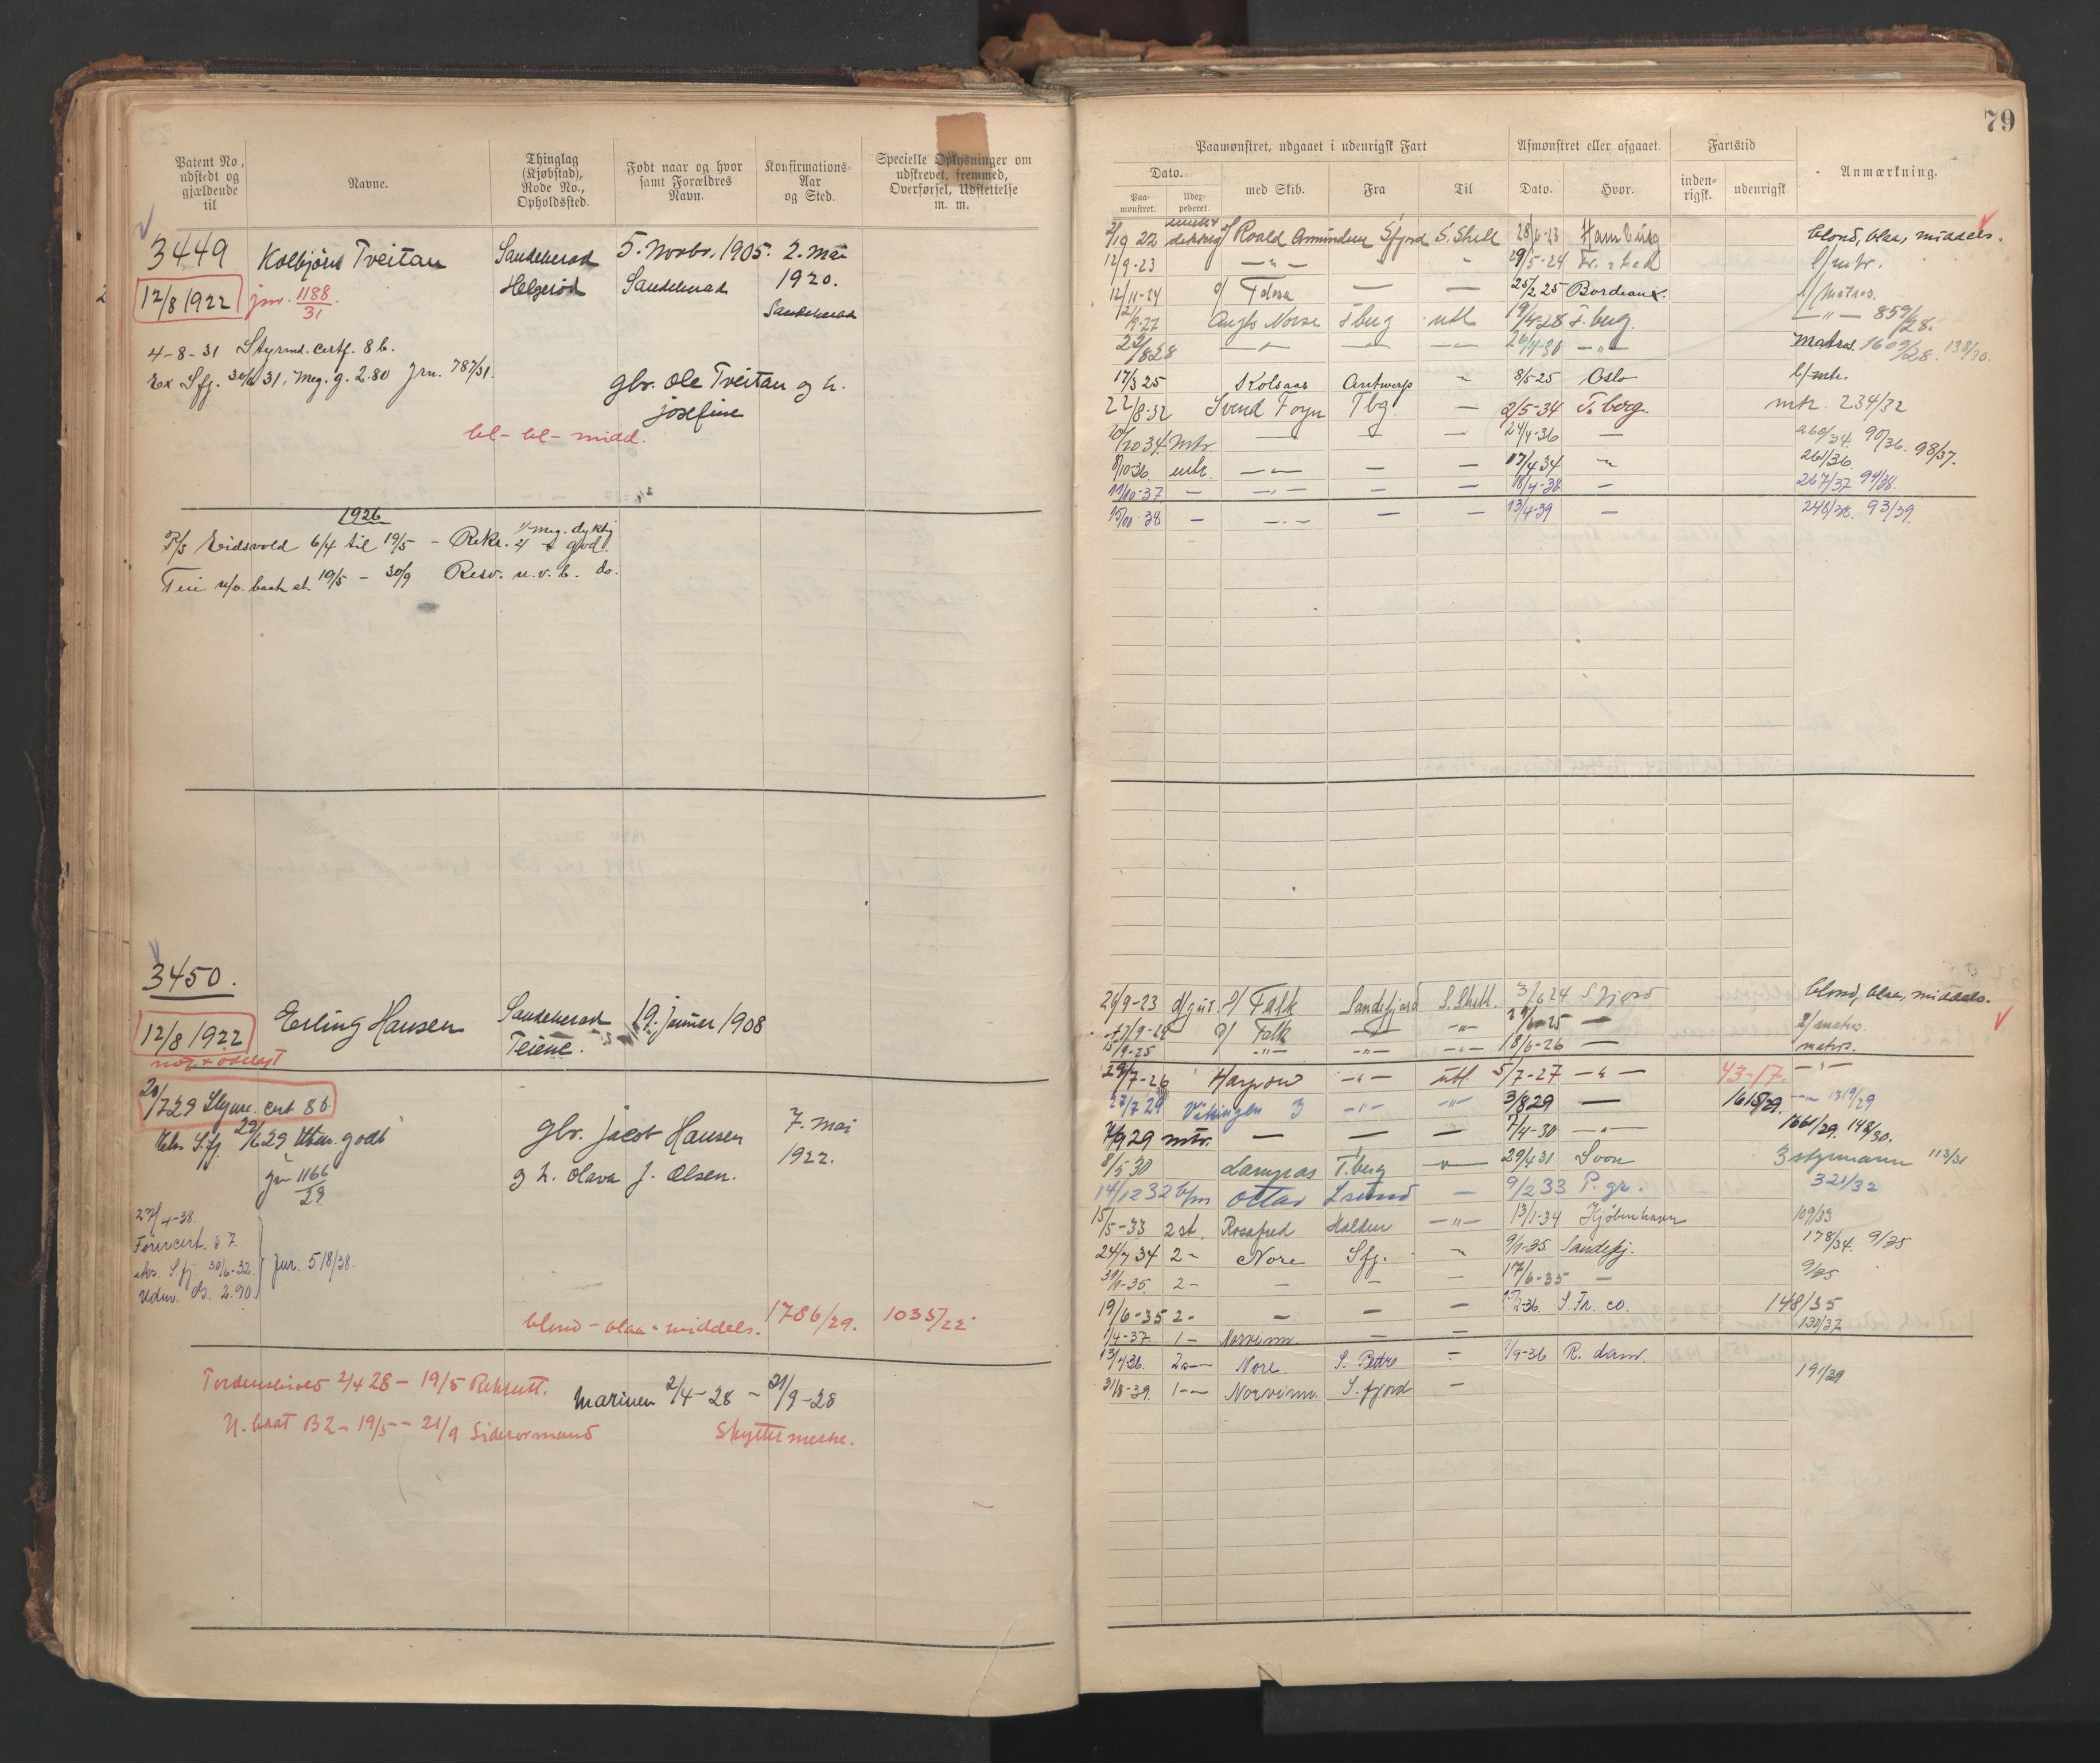 Patent No, udstedt og gjældende til
Navne.
Thinglag (Kjøbstad), Rode No., Opholdssted.
Født naar og hvor samt Forældres Navn.
Konfirmations-Aar og Sted.
Specielle Oplysninger om udskrevet, fremmed, Overførsel, Udslettelse m. m.
3449 Kolbjörn Tveitan Sandeherad 5. Novbr. 1905. 2. Mai
12/8 1922 jnr. 1188/31. Helgerød Sandeherad 1920.
Sandeherad
4-8-31 Styrmd. Certf. 8 b.
Ex Sfj. 31. Meg. g. 2.80 Jrn. 787/31.
gbr. Ole Tveitan og h.
Josefine
bl - bl - midd.
1926
P/s Eidsvold 6/4 til 19/5 - Rekr. meg. dyktig
19/5 - 30/9 Resv. u. v. b. do.
3450.
12/8 1922 Erling Hansen Sandeherad 19. Juni 1908
Teiene.
20/7 29 Styrm. Cert 8 b.
Eks Sfj. 29 godt
gbr. Jacob Hansen 7. Mai
jn 1166/29
g h. Olava J. Olsen. 1922.
27/4-38.
Førercert. § 7
eks. S.fj 30/6-32. Jnr. 518/38.
Udm. 2.90
blond - blaa - middels. 1786/29. 1035/22
Tordenskiold 2/4 28 - 19/5 Rekrutt.
Marinen 2/4 - 28 - 21/9 - 28
B2 - 19/5 - 21/9 Siderormand
Skyttermerke.
79
Paamønstret, udgaaet i udenrigsk Fart
Afmønstret eller afgaaet.
Fartstid
Anmærkning.
Dato.
Paa-mønstret.
Udex-pederet.
med Skib.
Fra
Til
Dato.
Hvor.
inden-rigsk.
udenrigsk
22 Roald Amundsen Sfjord S. Shetl 28/6-23 Hamburg blond, blaa, middels.
12/9-23 - " - 29/5-24 l/mtr.
12/11-24 Fdosa — — 25/2 25 Bordeaux. l/Matros.
Anglo Norse Tbug utl 19/4-28 T. bug. - " - 859/28.
8 28 - " - 26/4-30 - " - Matros 1609/28. 138/30.
17/3 25 Kolsaas Antwerp " 8/5-25 Oslo l/mtr.
22/8-32 Svend Foyn Tbg. — 2/5-34 T. berg. mtr. 234/32
10 34 Mtr — — — 24/4-36 — 260/34. 90/36. 98/37.
8/10-36 mtr. - " - — — 17/4 34 " 261/36.
11/10-37 — - " - — — 18/4-38 — 267/37 94/38.
15/10-38 — - " - — — 13/4-39 — 248/38. 93/39.
20/9-23 Falk Sandefjord S. Shetl. 3/6 24 Sfjord blond, blaa, middels.
Falk - " - - " - 6-25 — l/matros.
15/9-25 - " - - " - - " - 18/6-26 — matros.
29/7-26 - " - utl. 5/7-27 - " - 43-17. - " -
27/7 29 Vikingen 3 - " - - " - 3/8 29 — 1615/29. 1319/29
7/9 29 mtr. — — — 7/4-30 - " - 1661/29. 148/30.
8/5 30 Lampas T.berg " 29/4 31 Svon 3 styrmann 113/31
14/12 32 Ottar — 9/2 33 P. gr. 321/32
15/5-33 2 st. Rosafred Halden - " - 13/1-34 Kjøbenhavn 109/33
24/7 34 2 - Nore Sfj. " 9/1-35 Sandefj. 178/34. 9/35
-35. 2 - — — — 17/6-35 — 9/35
19/6-35 2 - — — — 2-36. S. Fr. co. 148/35
1/4-37. 1 - Norvinn — — 130/37
13/4-36. 2 - Nore S. Pedro — 9-36 R. dam.
31/8-39. 1 - Norvinn S. fjord — 191/39